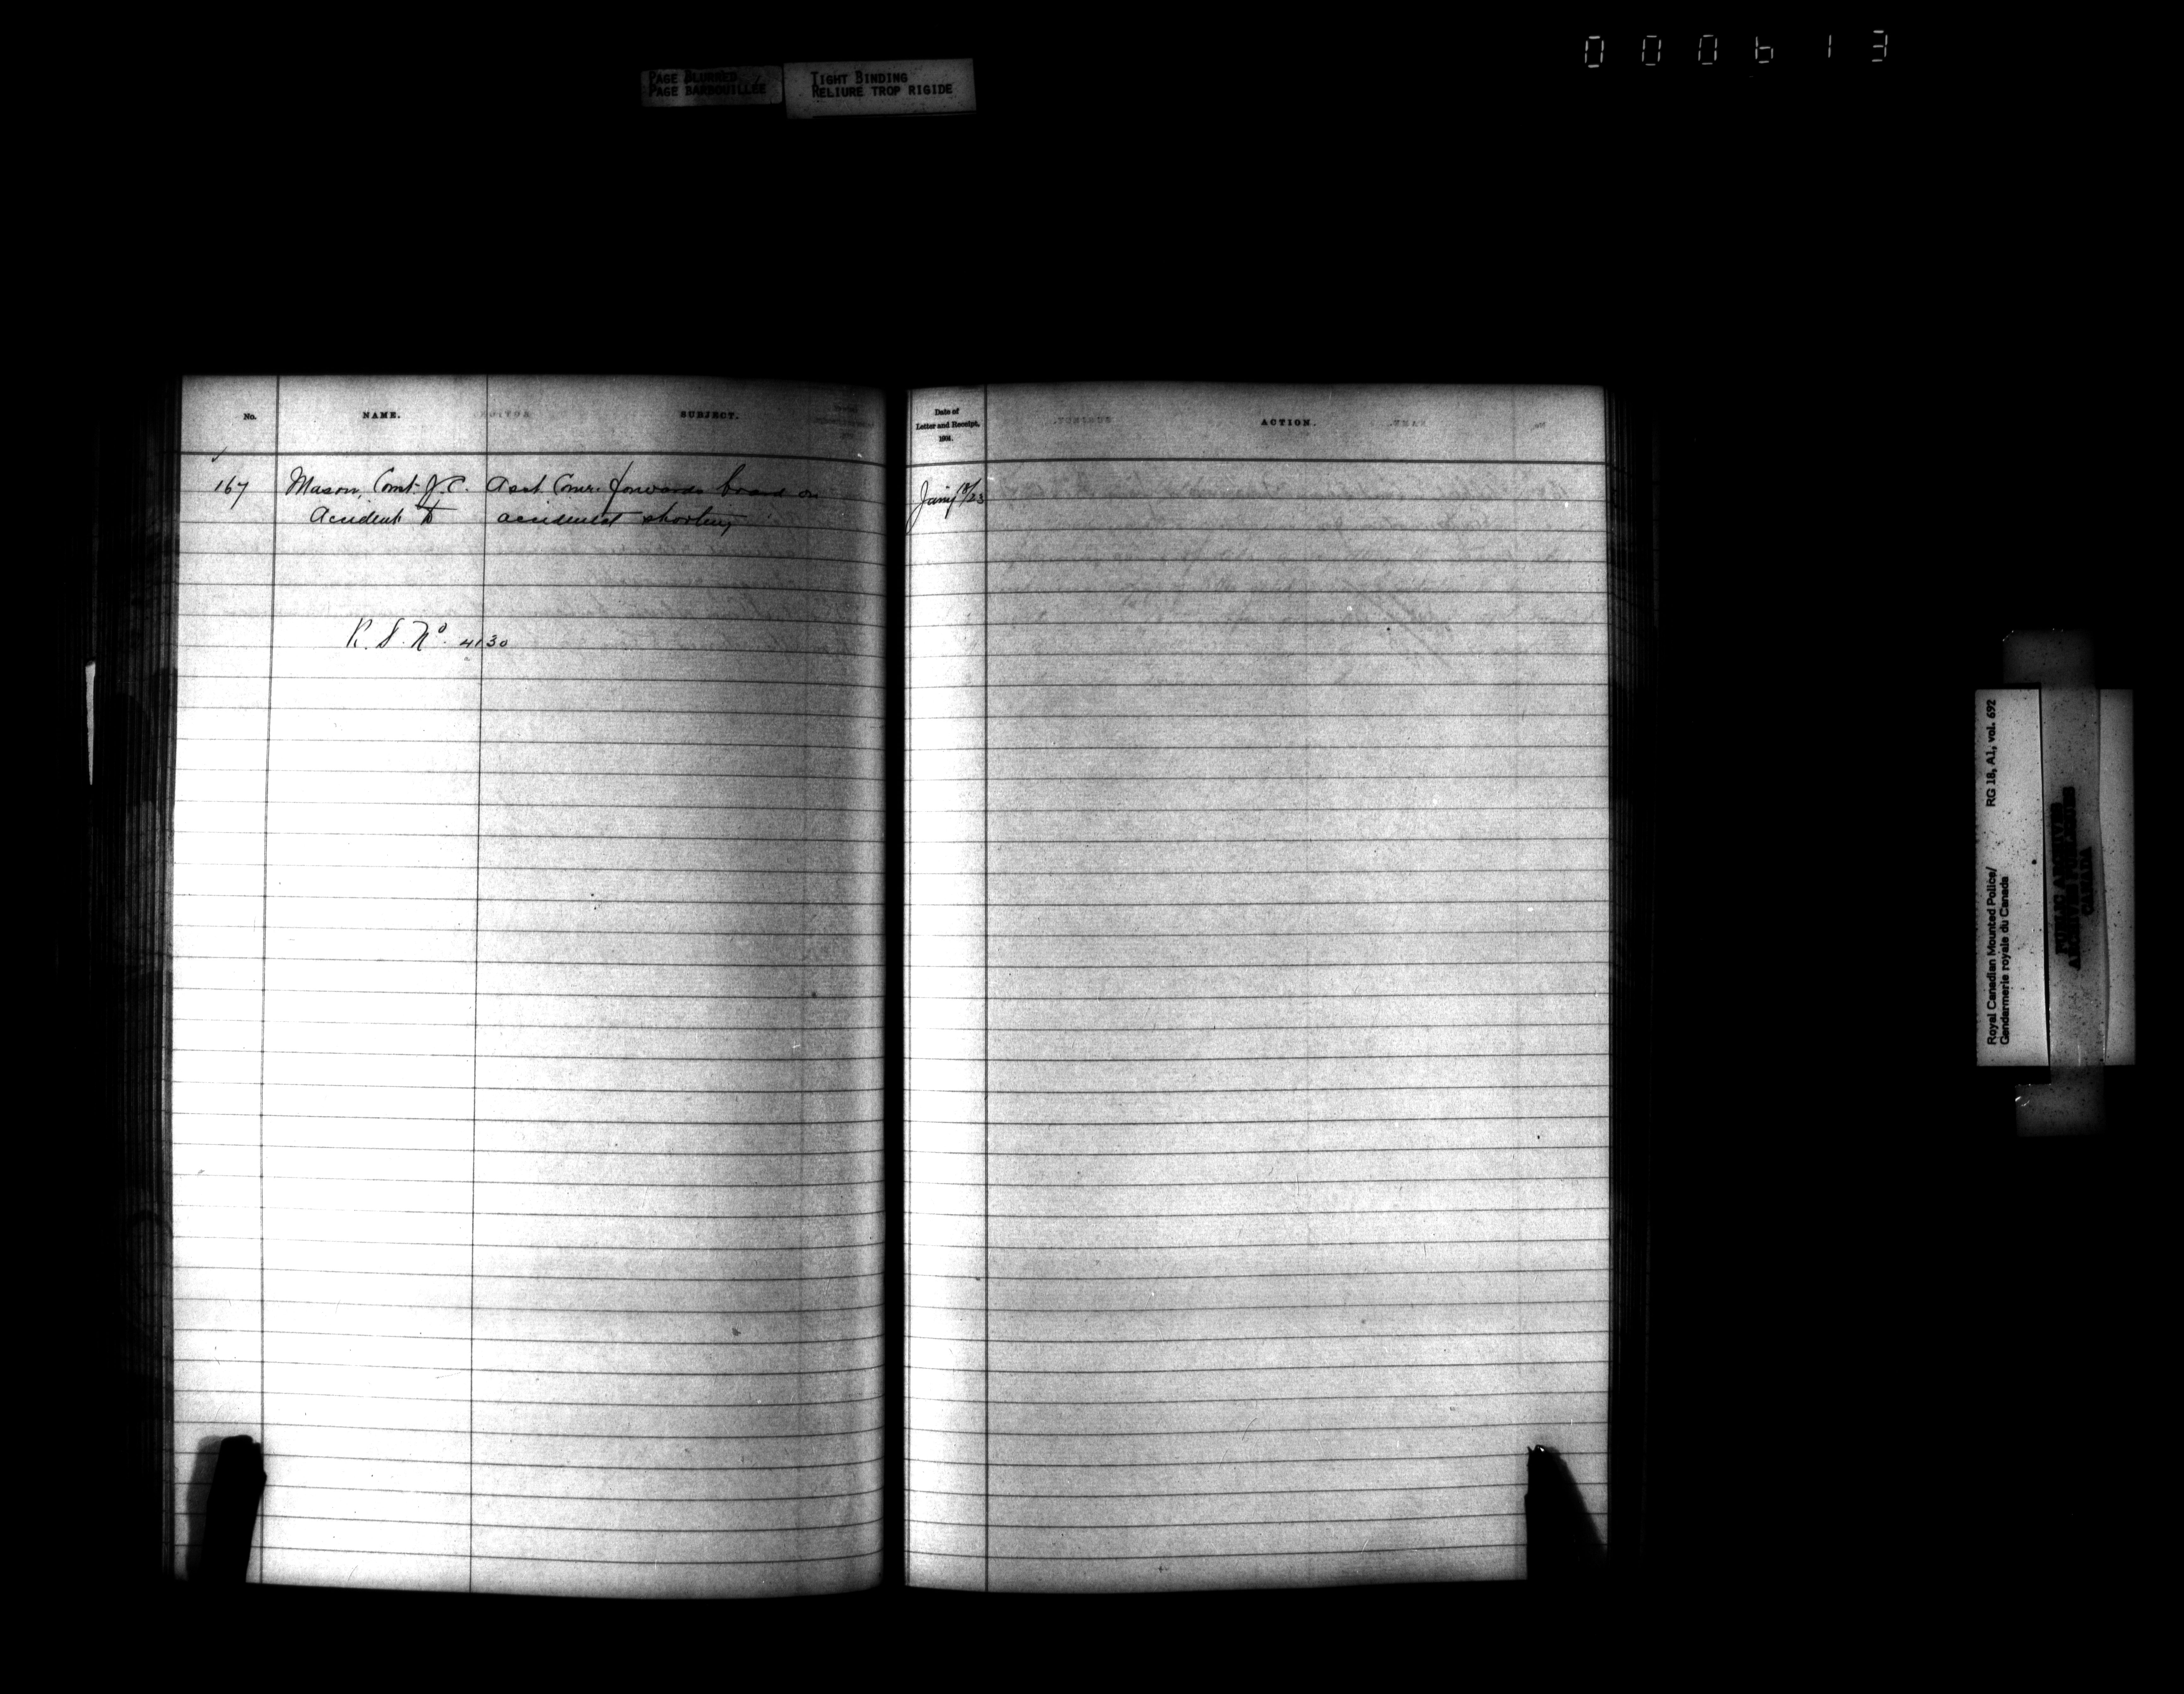 000613
PAGE BLURRED
PAGE BARBOUILLÉE
TIGHT BINDING
RELIURE TROP RIGIDE
No. NAME. SUBJECT.
167 Mason, Const. J. C. Asst. Comr. forwards board on
Accident to accidental shooting
R. S. No. 4130
Date of
Letter and Receipt,
ACTION.
Jany
Royal Canadian Mounted Police/ RG 18, A1, vol. 692
Gendarmerie royale du Canada
PUBLIC ARCHIVES
ARCHIVES PUBLIQUES
CANADA